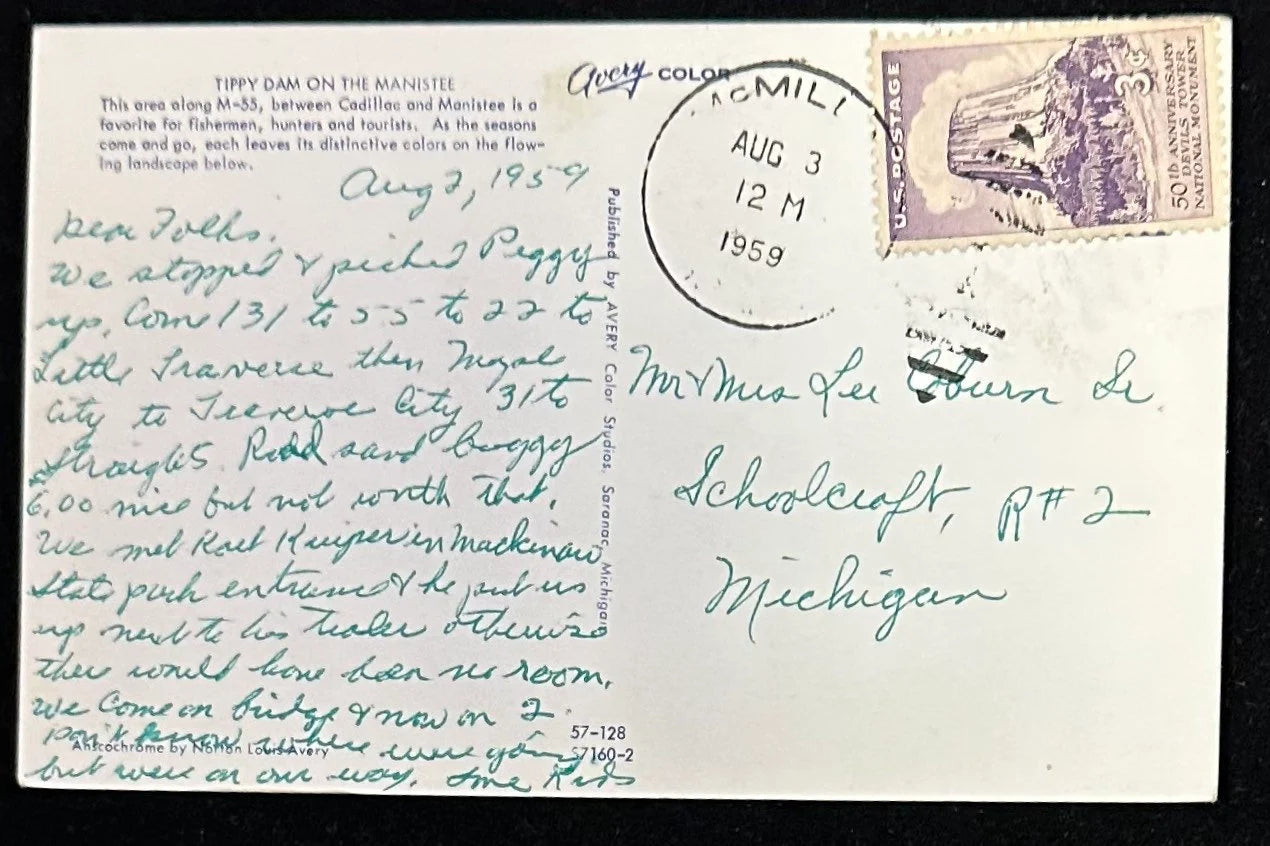 TIPPY DAM ON THE MANISTEE
This area along M-55, between Cadillac and Manistee is a
favorite for fishermen, hunters and tourists. As the seasons
come and go, each leaves its distinctive colors on the flow-
ing landscape below.
Avery COLOR
MILL
AUG 3
12 M
1959
U.S. POSTAGE
3¢
50th ANNIVERSARY
DEVILS TOWER
NATIONAL MONUMENT
Aug 2, 1959
Dear Folks.
We stopped & picked Peggy
up. Come 131 to 55 to 22 to
Little Traverse then
City to Traverse City 31 to
Straights. Ridd sand buggy
6.00 nice but not worth that.
We met Karl Kuiper in Mackinaw
State park entrance & he put us
up next to his trailer otherwise
there would have been no room.
We come on bridge & now on 2.
Don't know where were going
but were on our way. Kids
Published by AVERY Color Studios, Saranac, Michigan
Mr & Mrs Lee Coburn Sr.
Schoolcraft, R# 2
Michigan
57-128
Anscochrome by Notion Louis Avery
S7160-2